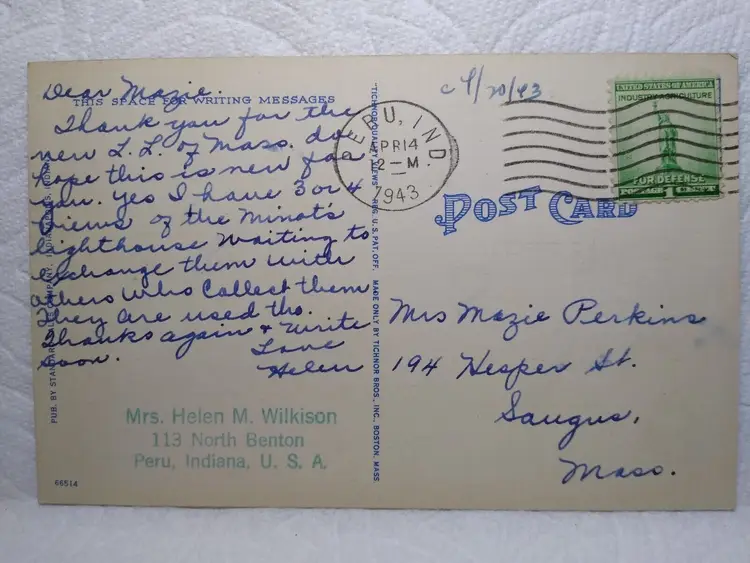 THIS SPACE FOR WRITING MESSAGES
Dear Mazie.
Thank you for the
new L.L. of Mass. do
hope this is new for
you. Yes I have 3 or 4
views of the Minot's
lighthouse waiting to
exchange them with
others who collect them
They are used tho.
Thanks again & write
soon.
Love
Helen
Mrs. Helen M. Wilkison
113 North Benton
Peru, Indiana, U. S. A.
66514
PUB. BY STANDARD SALES COMPANY,
"TICHNOR QUALITY VIEWS" REG. U. S. PAT. OFF. MADE ONLY BY TICHNOR BROS., INC., BOSTON, MASS
PERU, IND.
APR 14
2 - M
1943
4/20/43
UNITED STATES OF AMERICA
INDUSTRY AGRICULTURE
FOR DEFENSE
POSTAGE 1 CENT
POST CARD
Mrs Mazie Perkins
194 Hesper St.
Saugus,
Mass.